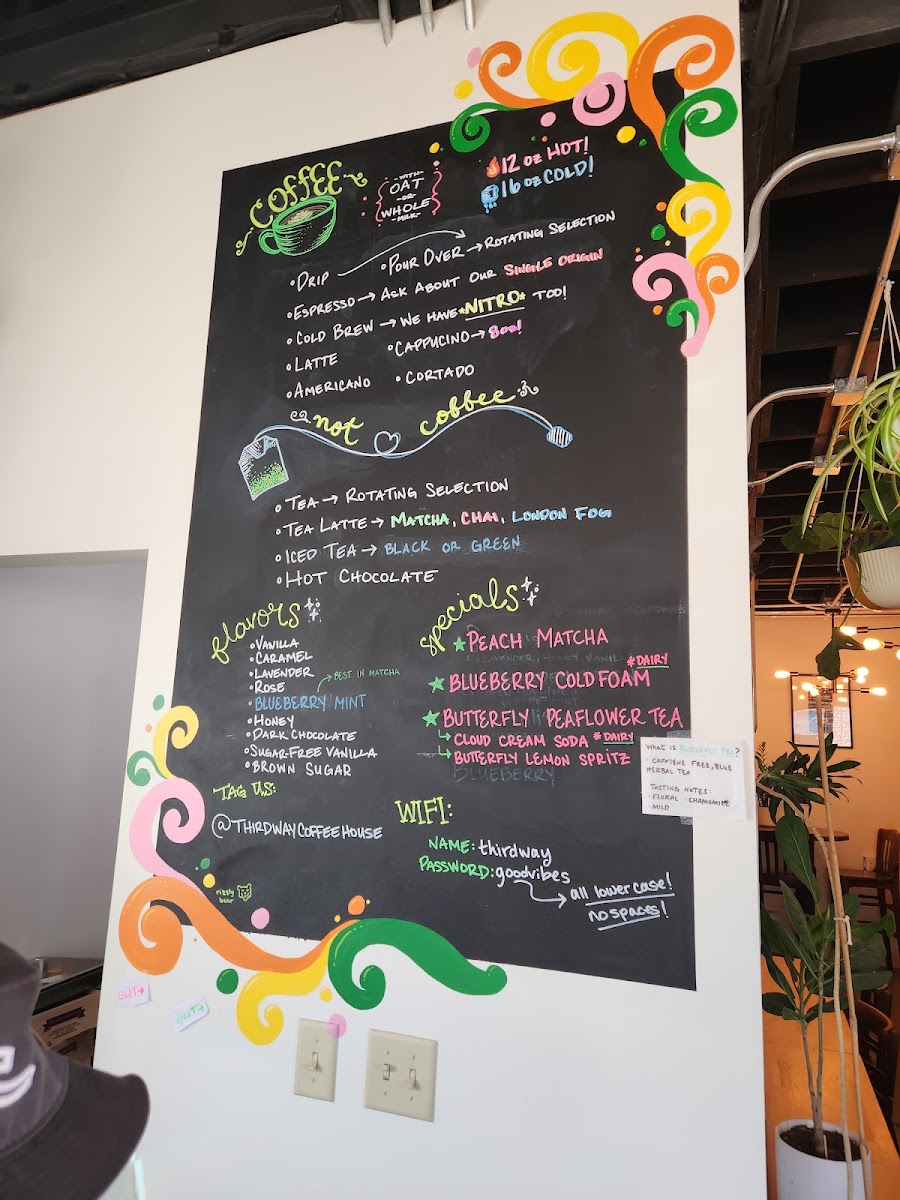 COFFEE
-WITH-
OAT
-OR-
WHOLE
-MILK-
12 oz HOT!
16 oz COLD!
• DRIP
• POUR OVER → ROTATING SELECTION
• ESPRESSO → ASK ABOUT OUR SINGLE ORIGIN
• COLD BREW → WE HAVE *NITRO* TOO!
• LATTE
• CAPPUCINO → 8oz!
• AMERICANO
• CORTADO
not coffee
• TEA → ROTATING SELECTION
• TEA LATTE → MATCHA, CHAI, LONDON FOG
• ICED TEA → BLACK OR GREEN
• HOT CHOCOLATE
flavors
• VANILLA
• CARAMEL
• LAVENDER
• ROSE
• BLUEBERRY MINT
→ BEST IN MATCHA
• HONEY
• DARK CHOCOLATE
• SUGAR-FREE VANILLA
• BROWN SUGAR
specials
★ PEACH MATCHA
★ BLUEBERRY COLD FOAM *DAIRY
★ BUTTERFLY PEAFLOWER TEA
↳ CLOUD CREAM SODA *DAIRY
↳ BUTTERFLY LEMON SPRITZ
BLUEBERRY
What is BUTTERFLY PEA?
- CAFFIENE FREE, BLUE
HERBAL TEA
TASTING NOTES:
- FLORAL - CHAMOMILE
- MILD
TAG US:
@THIRDWAYCOFFEEHOUSE
WIFI:
NAME: thirdway
PASSWORD: goodvibes
→ all lowercase!
no spaces!
OUT→
OUT→